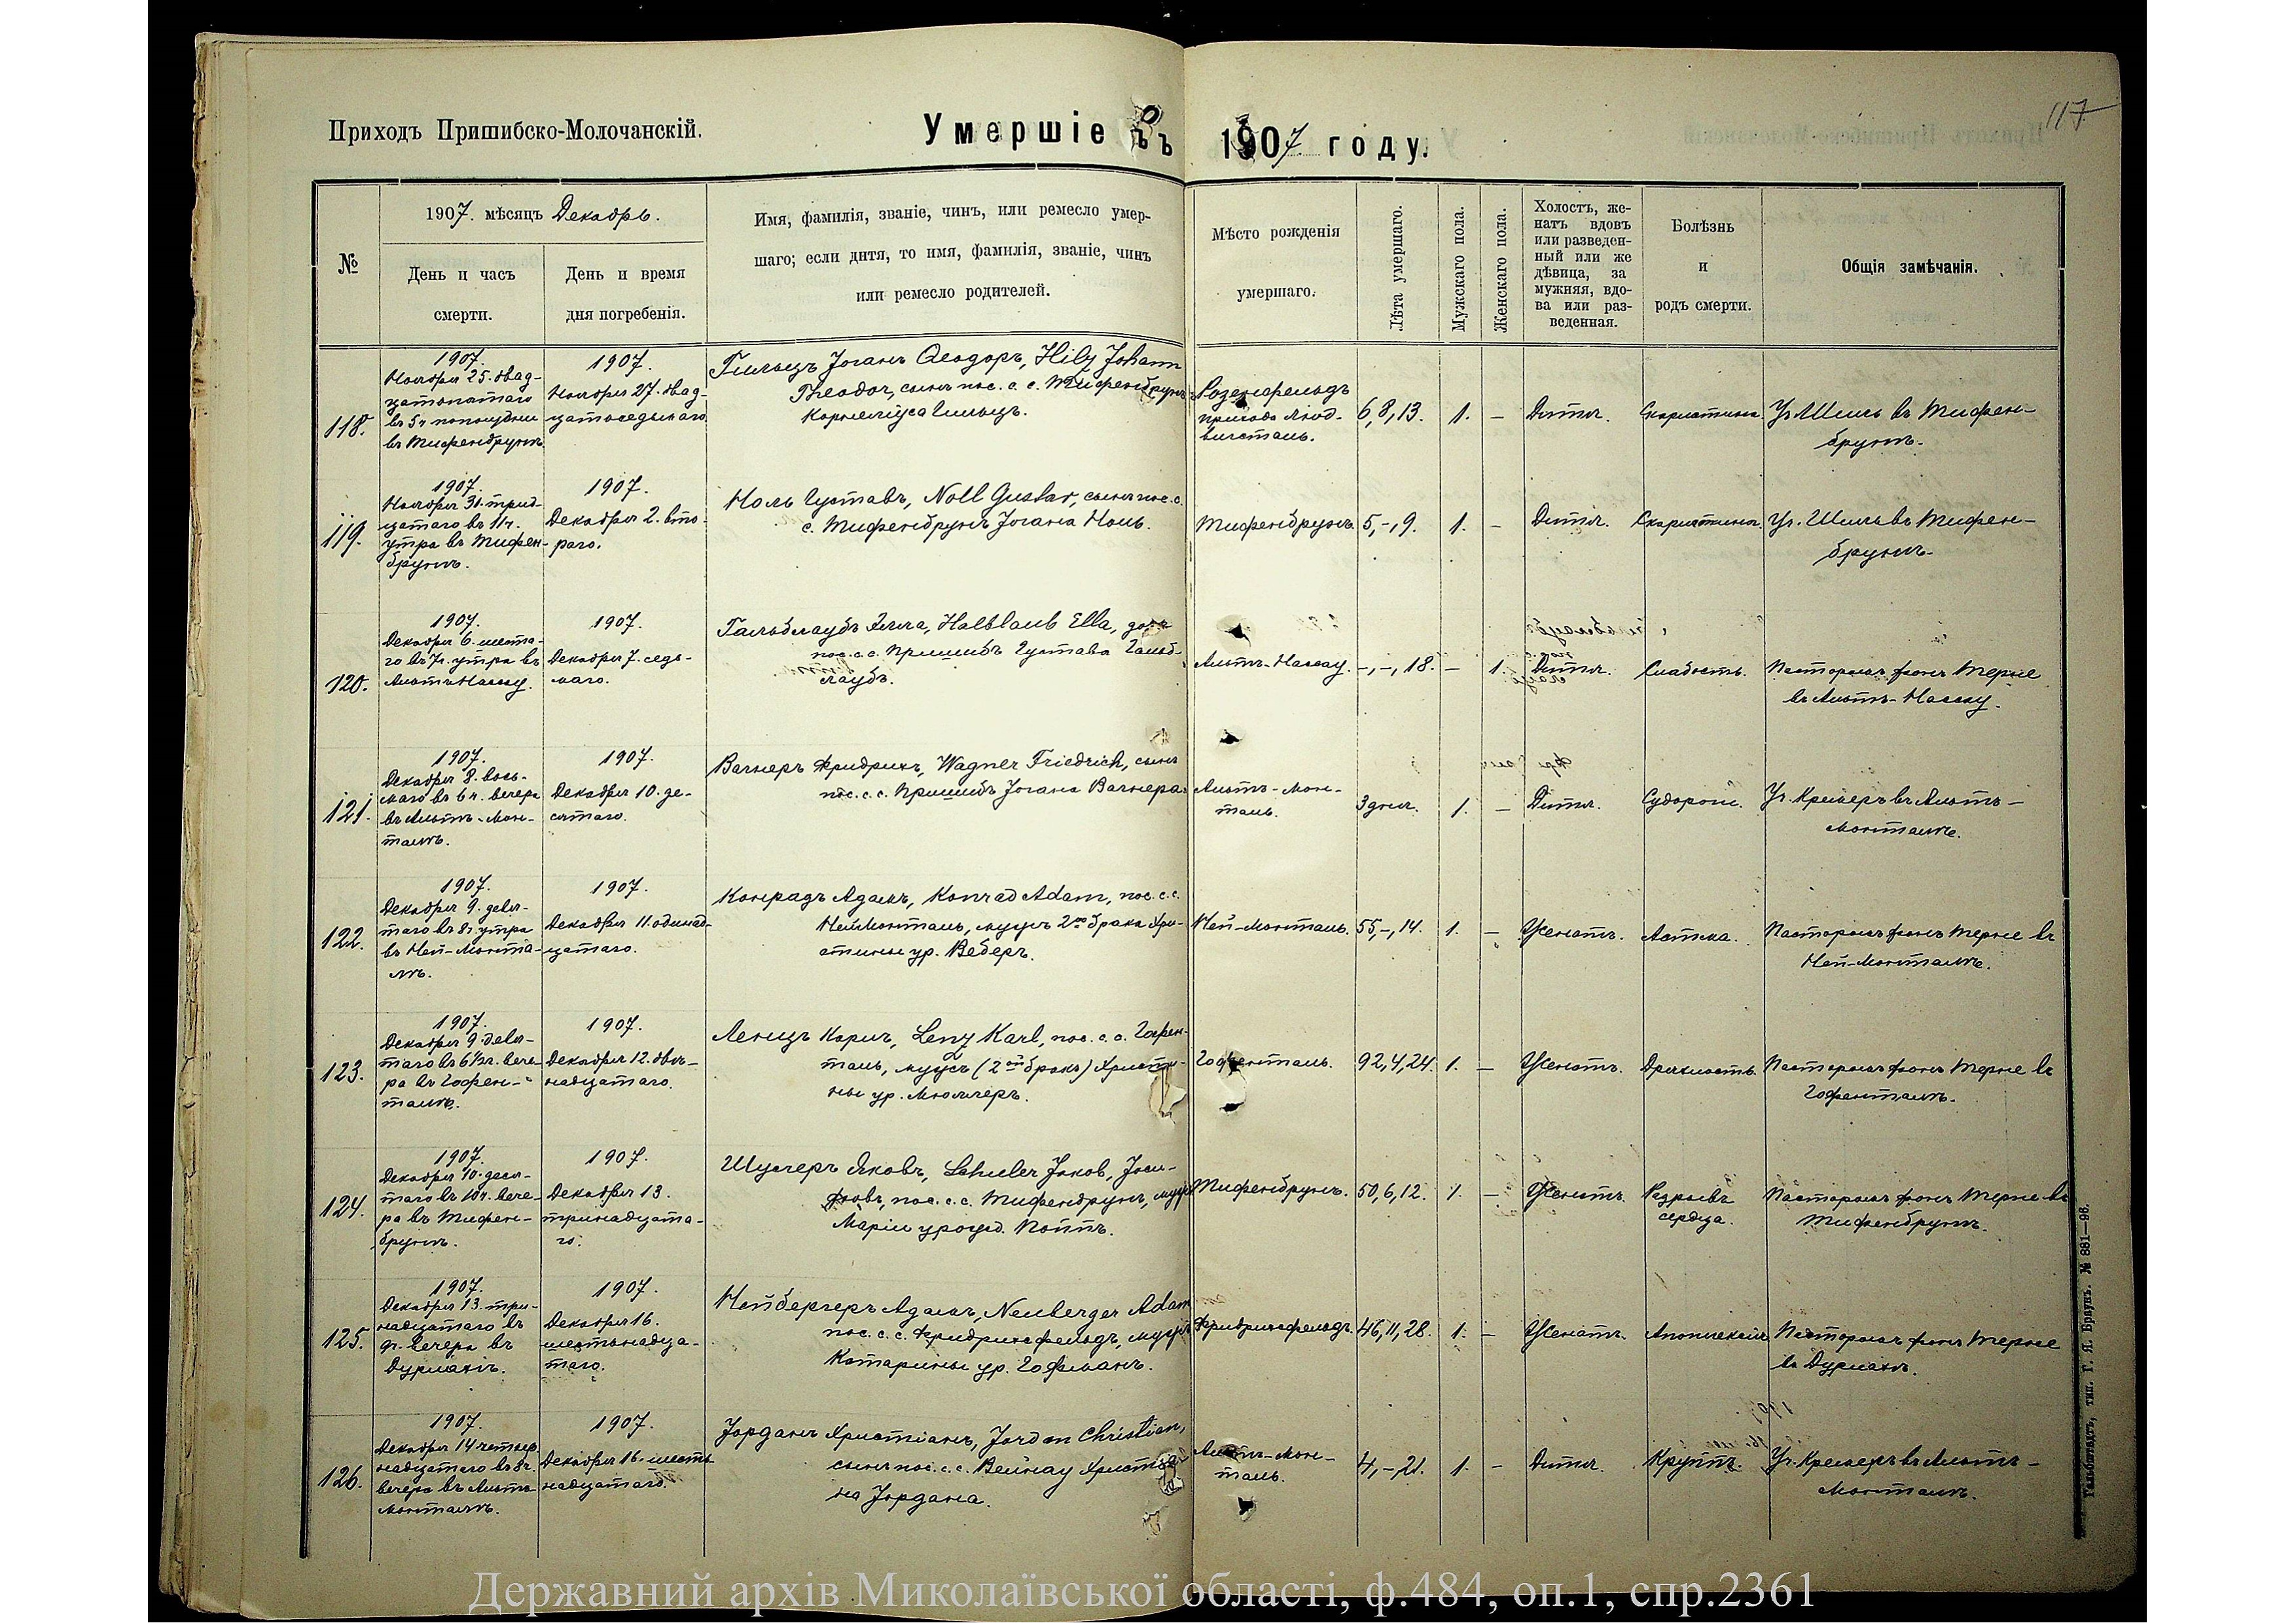 117
Приходъ Пришибско-Молочанскій.
Умершіе въ 1907 году.
№
1907. мѣсяцъ Декабрь.
День и часъ
смерти.
День и время
дня погребенія.
Имя, фамилія, званіе, чинъ, или ремесло умер-
шаго; если дитя, то имя, фамилія, званіе, чинъ
или ремесло родителей.
Мѣсто рожденія
умершаго.
Лѣта умершаго.
Мужскаго пола.
Женскаго пола.
Холостъ, же-
натъ вдовъ
или разведен-
ный или же
дѣвица, за
мужняя, вдо-
ва или раз-
веденная.
Болѣзнь
и
родъ смерти.
Общія замѣчанія.
118.
1907.
Ноября 25. двад-
цатопятаго
въ 5ч. пополудни
въ Тифенбруннѣ
1907.
Ноября 27. двад-
цатоседьмаго.
Гильцъ Іоганъ Ѳеодоръ, Hilz Johann
Theodor, сынъ пос. с. с. Тифенбрунъ
Корнеліуса Гильцъ.
Розенфельдъ
прихода Люд-
вигсталь.
6, 8, 13.
1.
–
Дитя.
Скарлатина.
Уч. Шиль въ Тифен-
бруннѣ.
119.
1907.
Ноября 30. трид-
цатаго въ 11ч.
утра въ Тифен-
бруннѣ.
1907.
Декабря 2. вто-
раго.
Ноль Густавъ, Noll Gustav, сынъ пос. с.
с. Тифенбрунъ Іогана Ноль.
Тифенбрунъ.
5, -, 9.
1.
–
Дитя.
Скарлатина.
Уч. Шиль въ Тифен-
бруннѣ.
120.
1907.
Декабря 6. шеста-
го въ 7ч. утра въ
Альтъ-Нассау.
1907.
Декабря 7. седь-
маго.
Гальблаубъ Элла, Halblaub Ella, дочь
пос. с. с. Пришибъ Густава Гальб-
лаубъ.
Альтъ-Нассау.
-, -, 18.
–
1.
Дитя.
Слабость.
Пасторомъ фонъ Терне
въ Альтъ-Нассау.
121.
1907.
Декабря 8. вось-
маго въ 6ч. вечера
въ Альтъ-Мон-
талѣ.
1907.
Декабря 10. де-
сятаго.
Вагнеръ Фридрихъ, Wagner Friedrich, сынъ
пос. с. с. Пришибъ Іогана Вагнера.
Альтъ-Мон-
таль.
3 дня.
1.
–
Дитя.
Судороги.
Уч. Кремеръ въ Альтъ-
Монталѣ.
122.
1907.
Декабря 9. девя-
таго въ 8ч. утра
въ Ней-Монта-
лѣ.
1907.
Декабря 11. одинад-
цатаго.
Конрадъ Адамъ, Konrad Adam, пос. с. с.
Ней Монталь, мужъ 2го брака Хри-
стины ур. Веберъ.
Ней-Монталь.
55, -, 14.
1.
–
Женатъ.
Астма.
Пасторомъ фонъ Терне въ
Ней-Монталѣ.
123.
1907.
Декабря 9. девя-
таго въ 6½ч. вече-
ра въ Гофен-
талѣ.
1907.
Декабря 12. двѣ-
надцатаго.
Ленцъ Карлъ, Lenz Karl, пос. с. с. Гофен-
таль, мужъ (2го брака) Христи-
ны ур. Мюллеръ.
Гофенталь.
92, 4, 24.
1.
–
Женатъ.
Дряхлость.
Пасторомъ фонъ Терне въ
Гофенталѣ.
124.
1907.
Декабря 10. деся-
таго въ 10ч. вече-
ра въ Тифен-
бруннѣ.
1907.
Декабря 13.
тринадцата-
го.
Шулеръ Яковъ, Schuler Jakob, Іоси-
фовъ, пос. с. с. Тифенбрунъ, мужъ
Маріи урожд. Поппъ.
Тифенбрунъ.
50, 6, 12.
1.
–
Женатъ.
Разрывъ
сердца.
Пасторомъ фонъ Терне въ
Тифенбруннѣ.
125.
1907.
Декабря 13. три-
надцатаго въ
9ч. вечера въ
Дурмани.
1907.
Декабря 16.
шестьнадца-
таго.
Нейбергеръ Адамъ, Neuberger Adam
пос. с. с. Фридрихсфельдъ, мужъ
Катарины ур. Гофманъ.
Фридрихсфельдъ.
46, 11, 28.
1.
–
Женатъ.
Апоплексія
Пасторомъ фонъ Терне
въ Дурмани.
126.
1907.
Декабря 14 четыр-
надцатаго въ 8ч.
вечера въ Альтъ-
Монталѣ.
1907.
Декабря 16. шесть-
надцатаго.
Іорданъ Христіанъ, Jordan Christian,
сынъ пос. с. с. Вейнау Христіа-
на Іордана.
Альтъ-Мон-
таль.
4, -, 21.
1.
–
Дитя.
Круппъ.
Уч. Кремеръ въ Альтъ-
Монталѣ.
Гальбштадтъ, тип. Г. Я. Браунъ. № 881—96.
Державний архів Миколаївської області, ф.484, оп.1, спр.2361